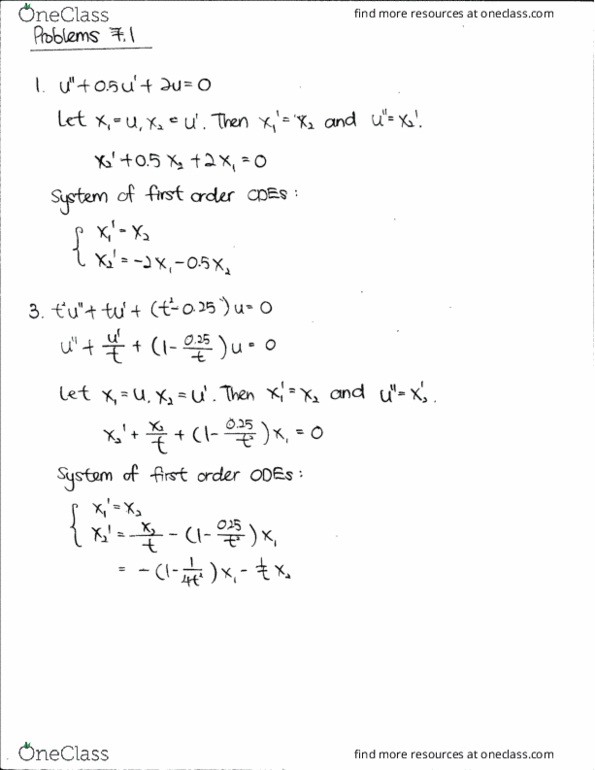 OneClass
find more resources at oneclass.com
Problems 7.1
1. u" + 0.5u' + 2u = 0
Let x₁ = u, x₂ = u'. Then x₁' = x₂ and u" = x₂'.
x₂' + 0.5 x₂ + 2x₁ = 0
System of first order ODEs :
{ x₁' = x₂
x₂' = -2x₁ - 0.5x₂
3. t²u" + tu' + (t² - 0.25)u = 0
u" + u'/t + (1 - 0.25/t)u = 0
Let x₁ = u, x₂ = u'. Then x₁' = x₂ and u" = x₂'.
x₂' + x₂/t + (1 - 0.25/t²)x₁ = 0
System of first order ODEs :
{ x₁' = x₂
x₂' = -x₂/t - (1 - 0.25/t²)x₁
= -(1 - 1/4t²)x₁ - 1/t x₂
OneClass
find more resources at oneclass.com